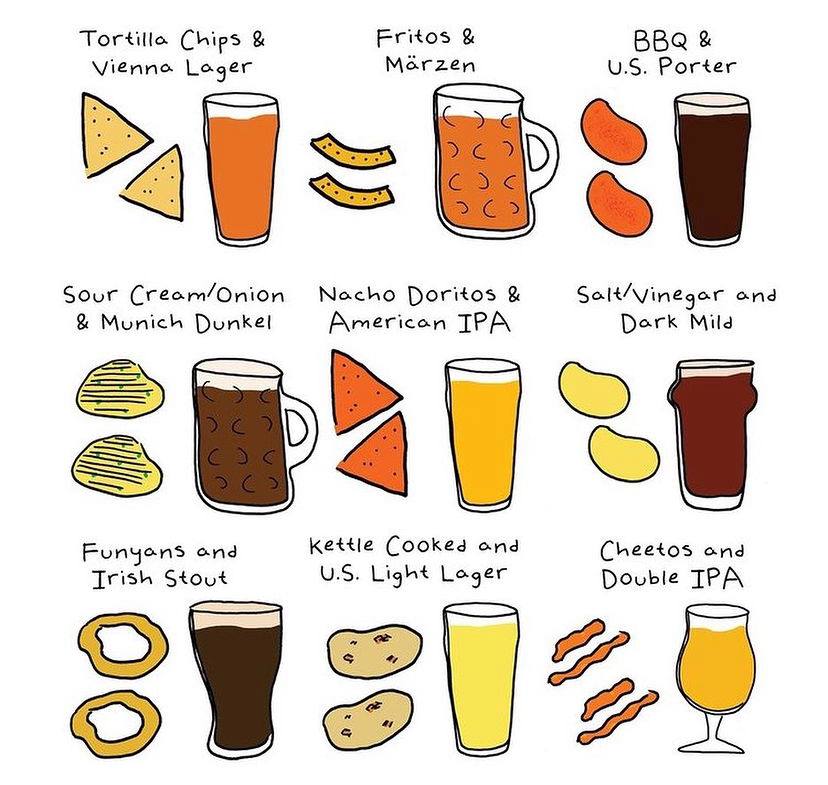 Tortilla Chips &
Vienna Lager
Fritos &
Märzen
BBQ &
U.S. Porter
Sour Cream/Onion
& Munich Dunkel
Nacho Doritos &
American IPA
Salt/Vinegar and
Dark Mild
Funyans and
Irish Stout
Kettle Cooked and
U.S. Light Lager
Cheetos and
Double IPA